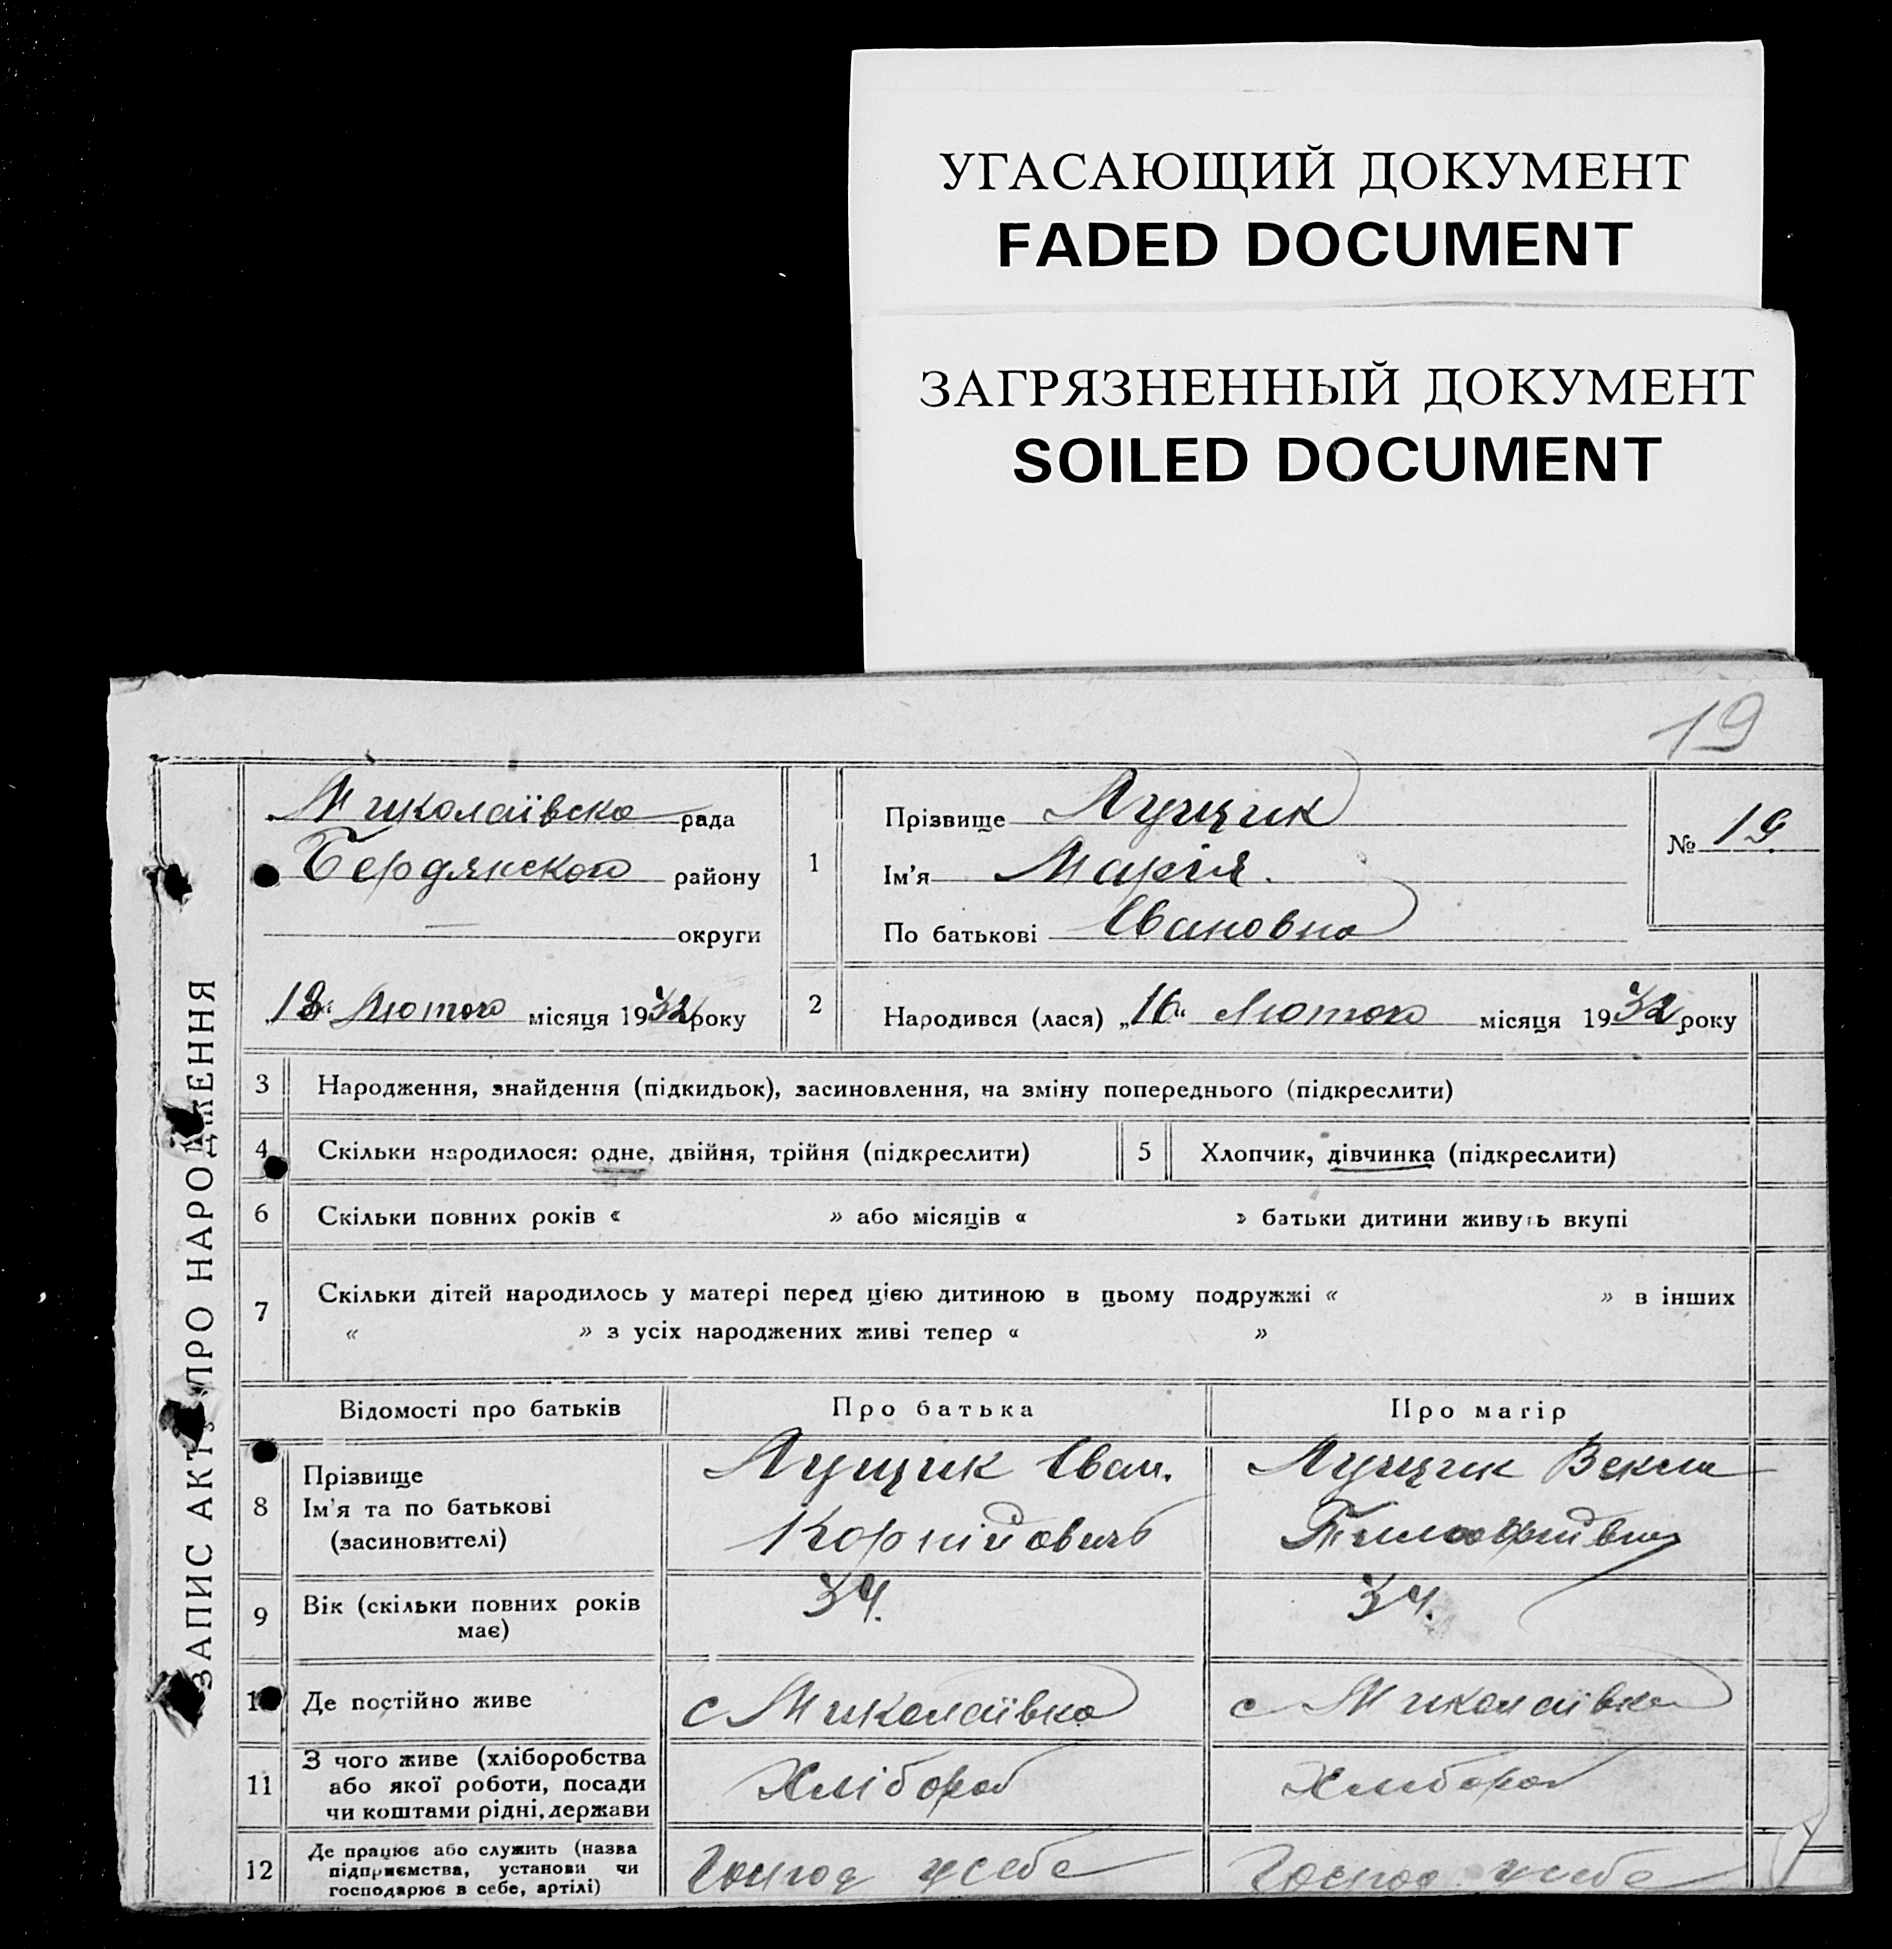 УГАСАЮЩИЙ ДОКУМЕНТ
FADED DOCUMENT
ЗАГРЯЗНЕННЫЙ ДОКУМЕНТ
SOILED DOCUMENT
19
ЗАПИС АКТУ ПРО НАРОДЖЕННЯ
Миколаївска рада
Бердянского району
— округи
18 Лютого місяця 1932 року
1
Прізвище Лущик
Ім'я Марія.
По батькові Івановна
№ 19
2
Народився (лася) „16“ Лютого місяця 1932 року
3 Народження, знайдення (підкидьок), засиновлення, на зміну попереднього (підкреслити)
4 Скільки народилося: одне, двійня, трійня (підкреслити)
5 Хлопчик, дівчинка (підкреслити)
6 Скільки повних років « » або місяців « » батьки дитини живуть вкупі
7 Скільки дітей народилось у матері перед цією дитиною в цьому подружжі « » в інших
« » з усіх народжених живі тепер « »
Відомості про батьків Про батька Про матір
8 Прізвище
Ім'я та по батькові
(засиновителі)
Лущик Іван.
Корнійович
Лущик Векла
9 Вік (скільки повних років
має)
34.
34.
10 Де постійно живе
с Миколаївка
с Миколаївка
11 З чого живе (хліборобства
або якої роботи, посади
чи коштами рідні, держави
Хлібороб
Хлібороб
12 Де працює або служить (назва
підприємства, установи чи
господарює в себе, артілі)
Господ у себе
Господ у себе